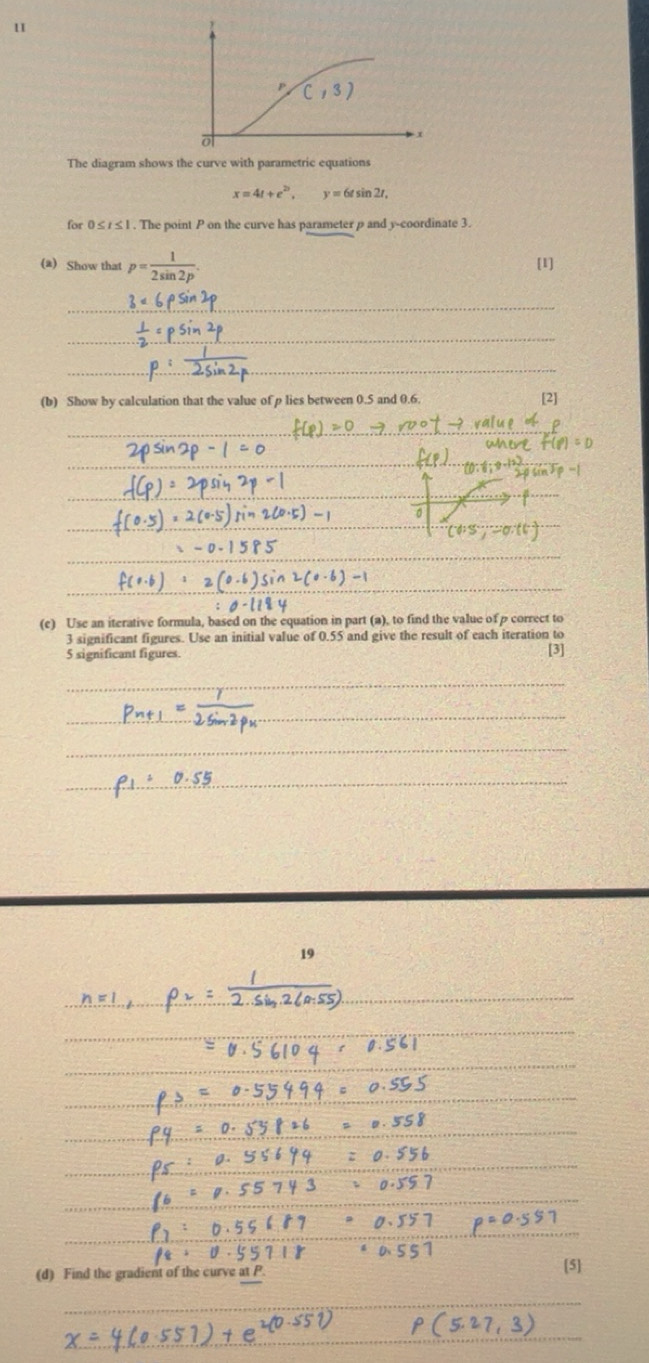 11
y
P (  , 3)
O
x
The diagram shows the curve with parametric equations
x = 4t + e^{2t},   y = 6t sin 2t,
for 0 ≤ t ≤ 1. The point P on the curve has parameter p and y-coordinate 3.
(a) Show that p = 1/(2 sin 2p). [1]
3 = 6p sin 2p
1/2 = p sin 2p
p = 1/(2 sin 2p)
(b) Show by calculation that the value of p lies between 0.5 and 0.6. [2]
f(p) = 0 → root → value of p
where f(p) = 0
2p sin 2p - 1 = 0
f(p)
2p sin 2p - 1
f(p) = 2p sin 2p - 1
p
0
f(0.5) = 2(0.5) sin 2(0.5) - 1
= -0.1585
f(0.6) = 2(0.6) sin 2(0.6) - 1
= 0.1184
(c) Use an iterative formula, based on the equation in part (a), to find the value of p correct to
3 significant figures. Use an initial value of 0.55 and give the result of each iteration to
5 significant figures. [3]
p_{n+1} = 1/(2 sin 2p_n)
p_1 = 0.55
19
n = 1, p_2 = 1/(2 sin 2(0.55))
= 0.56104 = 0.561
p_3 = 0.55494 = 0.555
p_4 = 0.55826 = 0.558
p_5 = 0.55644 = 0.556
p_6 = 0.55743 = 0.557
p_7 = 0.55689 = 0.557   p = 0.557
p_8 = 0.55718 = 0.557
(d) Find the gradient of the curve at P. [5]
x = 4(0.557) + e^{2(0.557)}   P(5.27, 3)